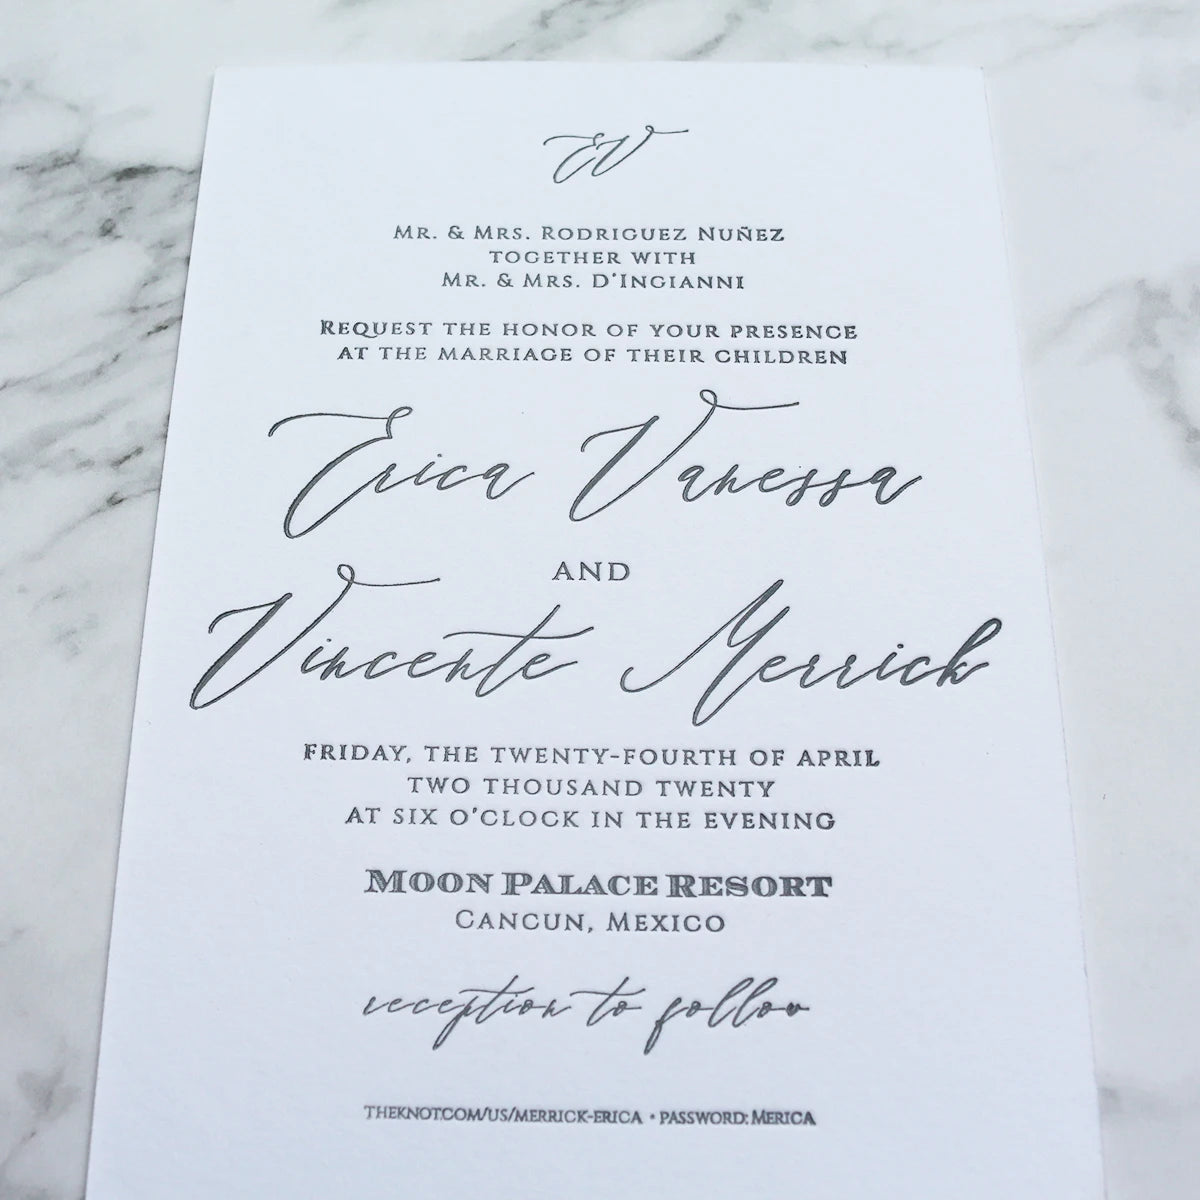 EV
Mr. & Mrs. Rodriguez Nuñez
together with
Mr. & Mrs. D'Ingianni
Request the honor of your presence
at the marriage of their children
Erica Vanessa
and
Vincente Merrick
Friday, the twenty-fourth of April
two thousand twenty
at six o'clock in the evening
Moon Palace Resort
Cancun, Mexico
reception to follow
theknot.com/us/merrick-erica • password: Merica